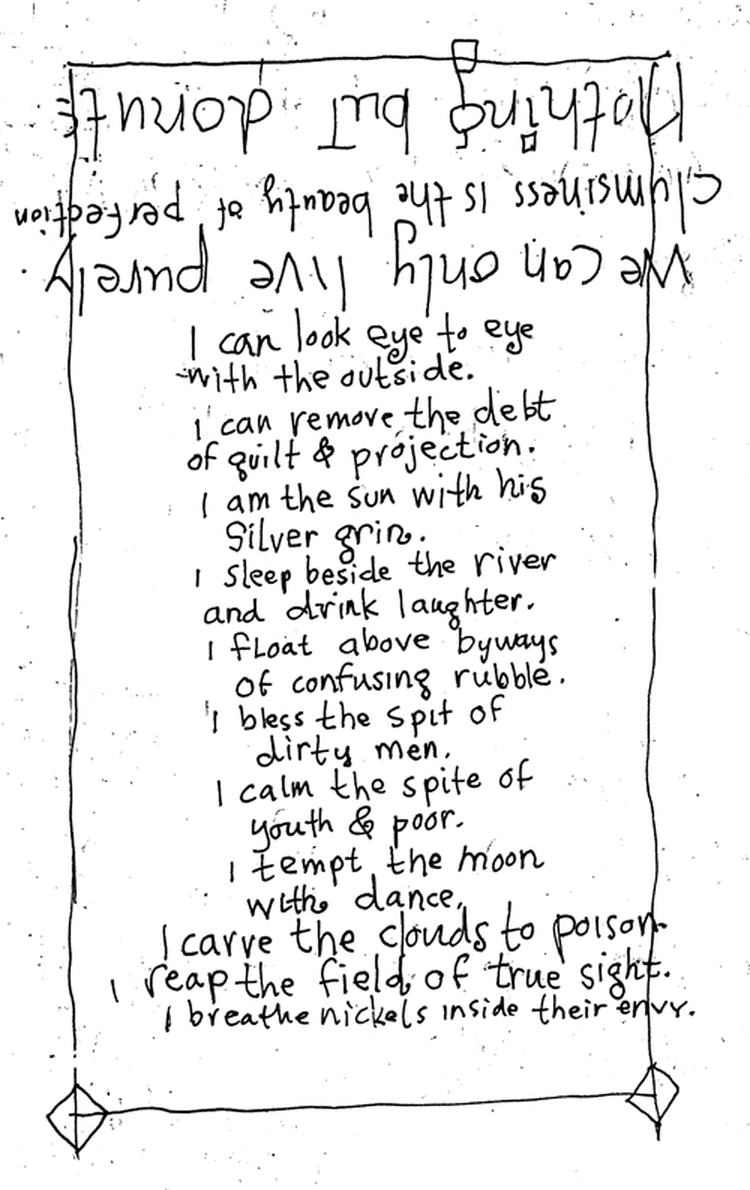 We can only live purely.
clumsiness is the beauty of perfection
Nothing but donuts
I can look eye to eye
with the outside.
I can remove the debt
of guilt & projection.
I am the sun with his
Silver grin.
I sleep beside the river
and drink laughter.
I float above byways
of confusing rubble.
I bless the spit of
dirty men.
I calm the spite of
youth & poor.
I tempt the moon
with dance.
I carve the clouds to poison.
I reap the field of true sight.
I breathe nickels inside their envy.